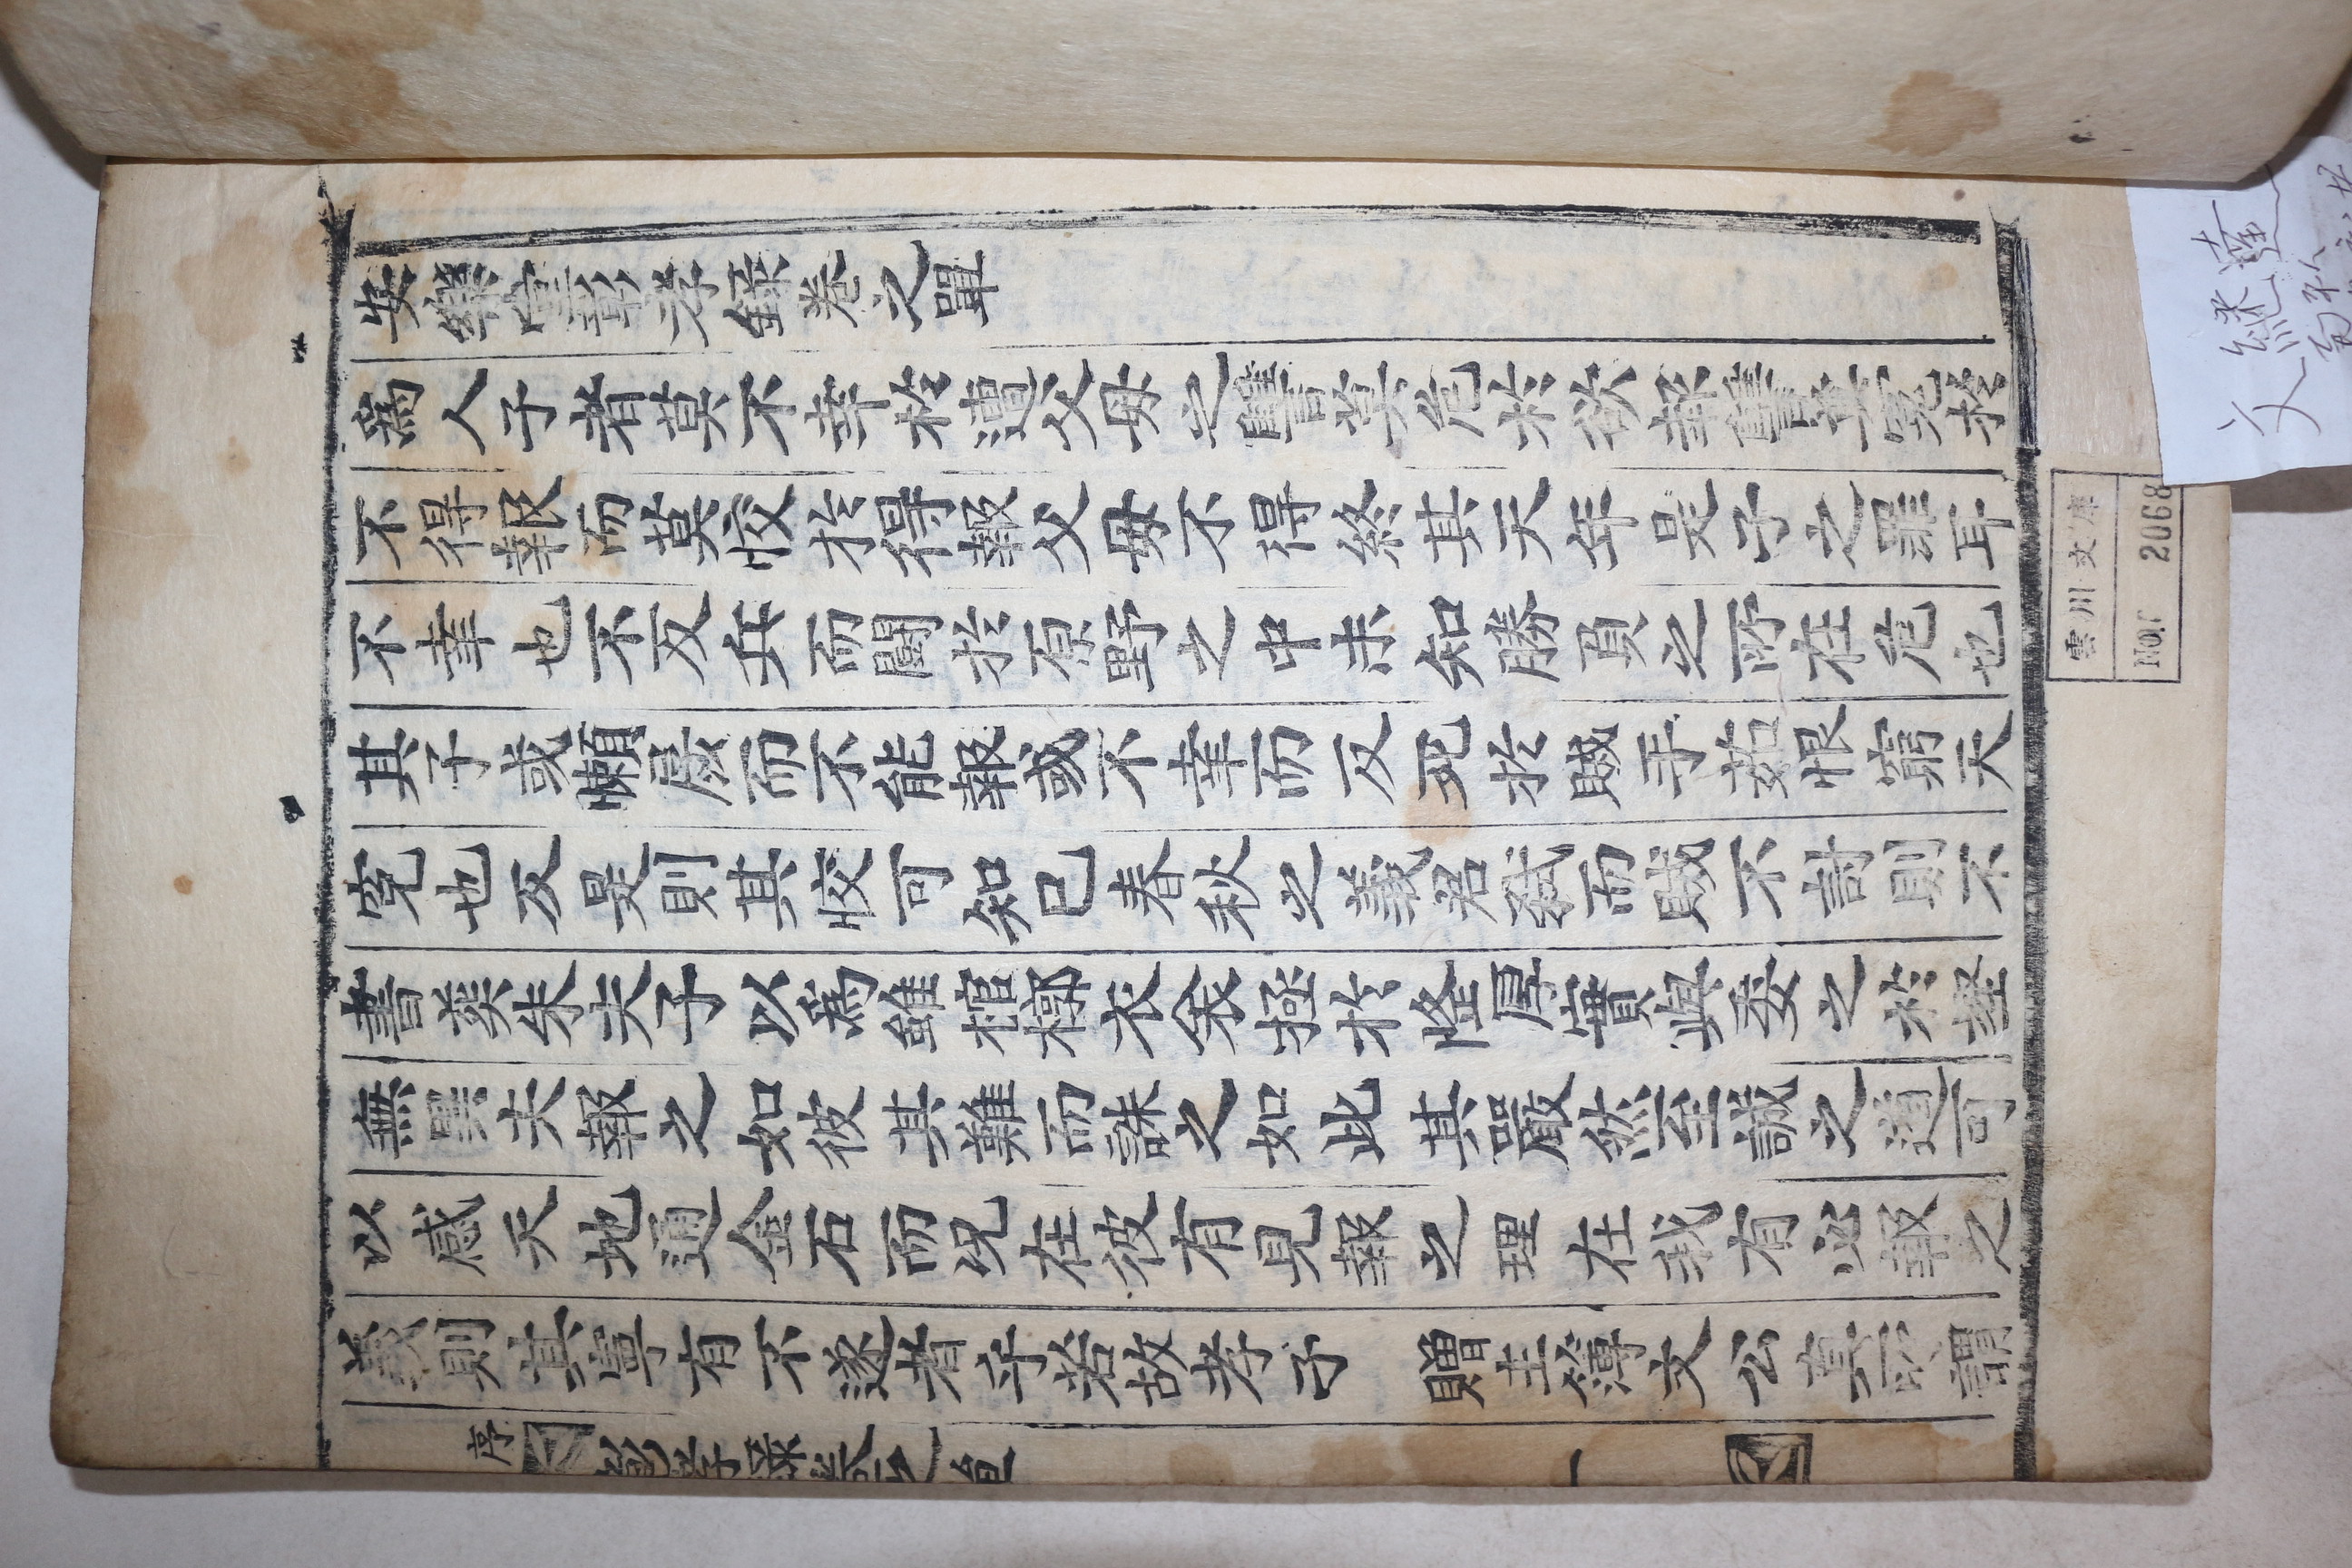 安樂窩彰孝錄卷之單
爲人子者莫不幸於遭父母之讎莫危於欲報讎莫寃於
不得報而莫恔於得報父母不得終其天年是子之罪耳
不幸也不反兵而鬪於原野之中未知勝負之所在危也
其子或懶孱而不能報或不幸而反死於賊手茹恨窮天
寃也反是則其恔可知已春秋之義君弑而賊不討則不
書葬朱夫子以爲雖棺槨衣衾極於隆厚實與委之於壑
無異夫報之如彼其難而誅之如此其嚴然至誠之道可
以感天地通金石而況在彼有見報之理在我有必報之
義則其寧有不遂者乎若故孝子 贈主簿文公所謂
序 彰孝錄卷之單 一
雲川文庫
No. 2068